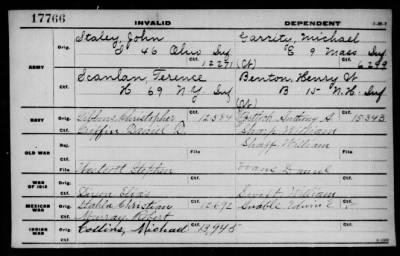 17766
INVALID DEPENDENT
Staley, John Garrity, Michael
Orig. D 46 Ohio Inf E 9 Mass Inf
ARMY Ctf. 12271 (Ct) 6299
Scanlan, Terence Benton, Henry W
Orig. H 69 N.Y. Inf B 15 N.H. Inf
Ctf. (Ct)
NAVY Orig. Gibbons, Christopher 12584 Anthony A. 15343
Ctf. Griffin Daniel Sharp William
Rej. Shaff William
OLD WAR Ctf.
File Westcott Stephen File Evans Daniel
WAR OF 1812 Orig.
Ctf. Elias William
MEXICAN WAR Orig. Christian 12692 Edwin E
Ctf. Murray Robert
INDIAN WAR Orig. Collins, Michael 13,945
Ctf.